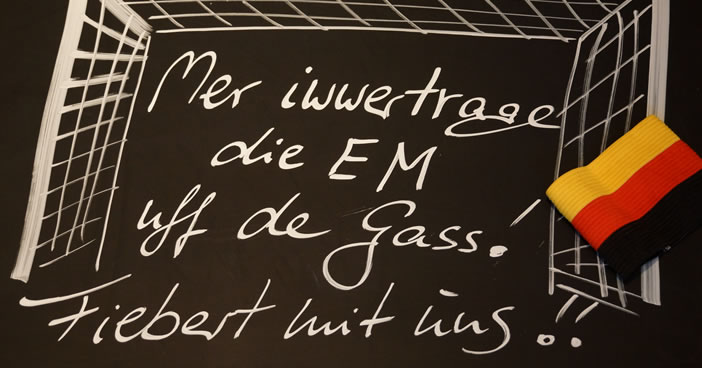 Mer iwwertrage
die EM
uff de Gass!
Fiebert mit uns..!!